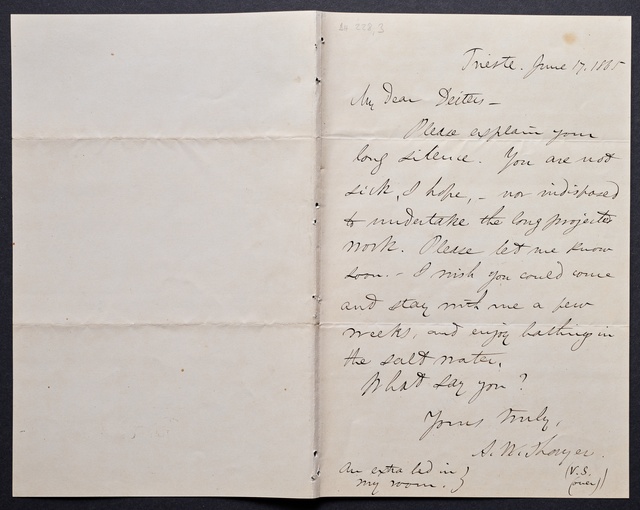 Trieste. June 17, 1885
My Dear Deiters –
Please explain your
long silence. You are not
sick, I hope, – nor indisposed
to undertake the long projected
work. Please let me know
soon. – I wish you could come
and stay with me a few
weeks, and enjoy bathing in
the salt water.
What say you?
Yours truly,
A. W. Thayer.
An extra bed in
my room.
(V. S.
over)